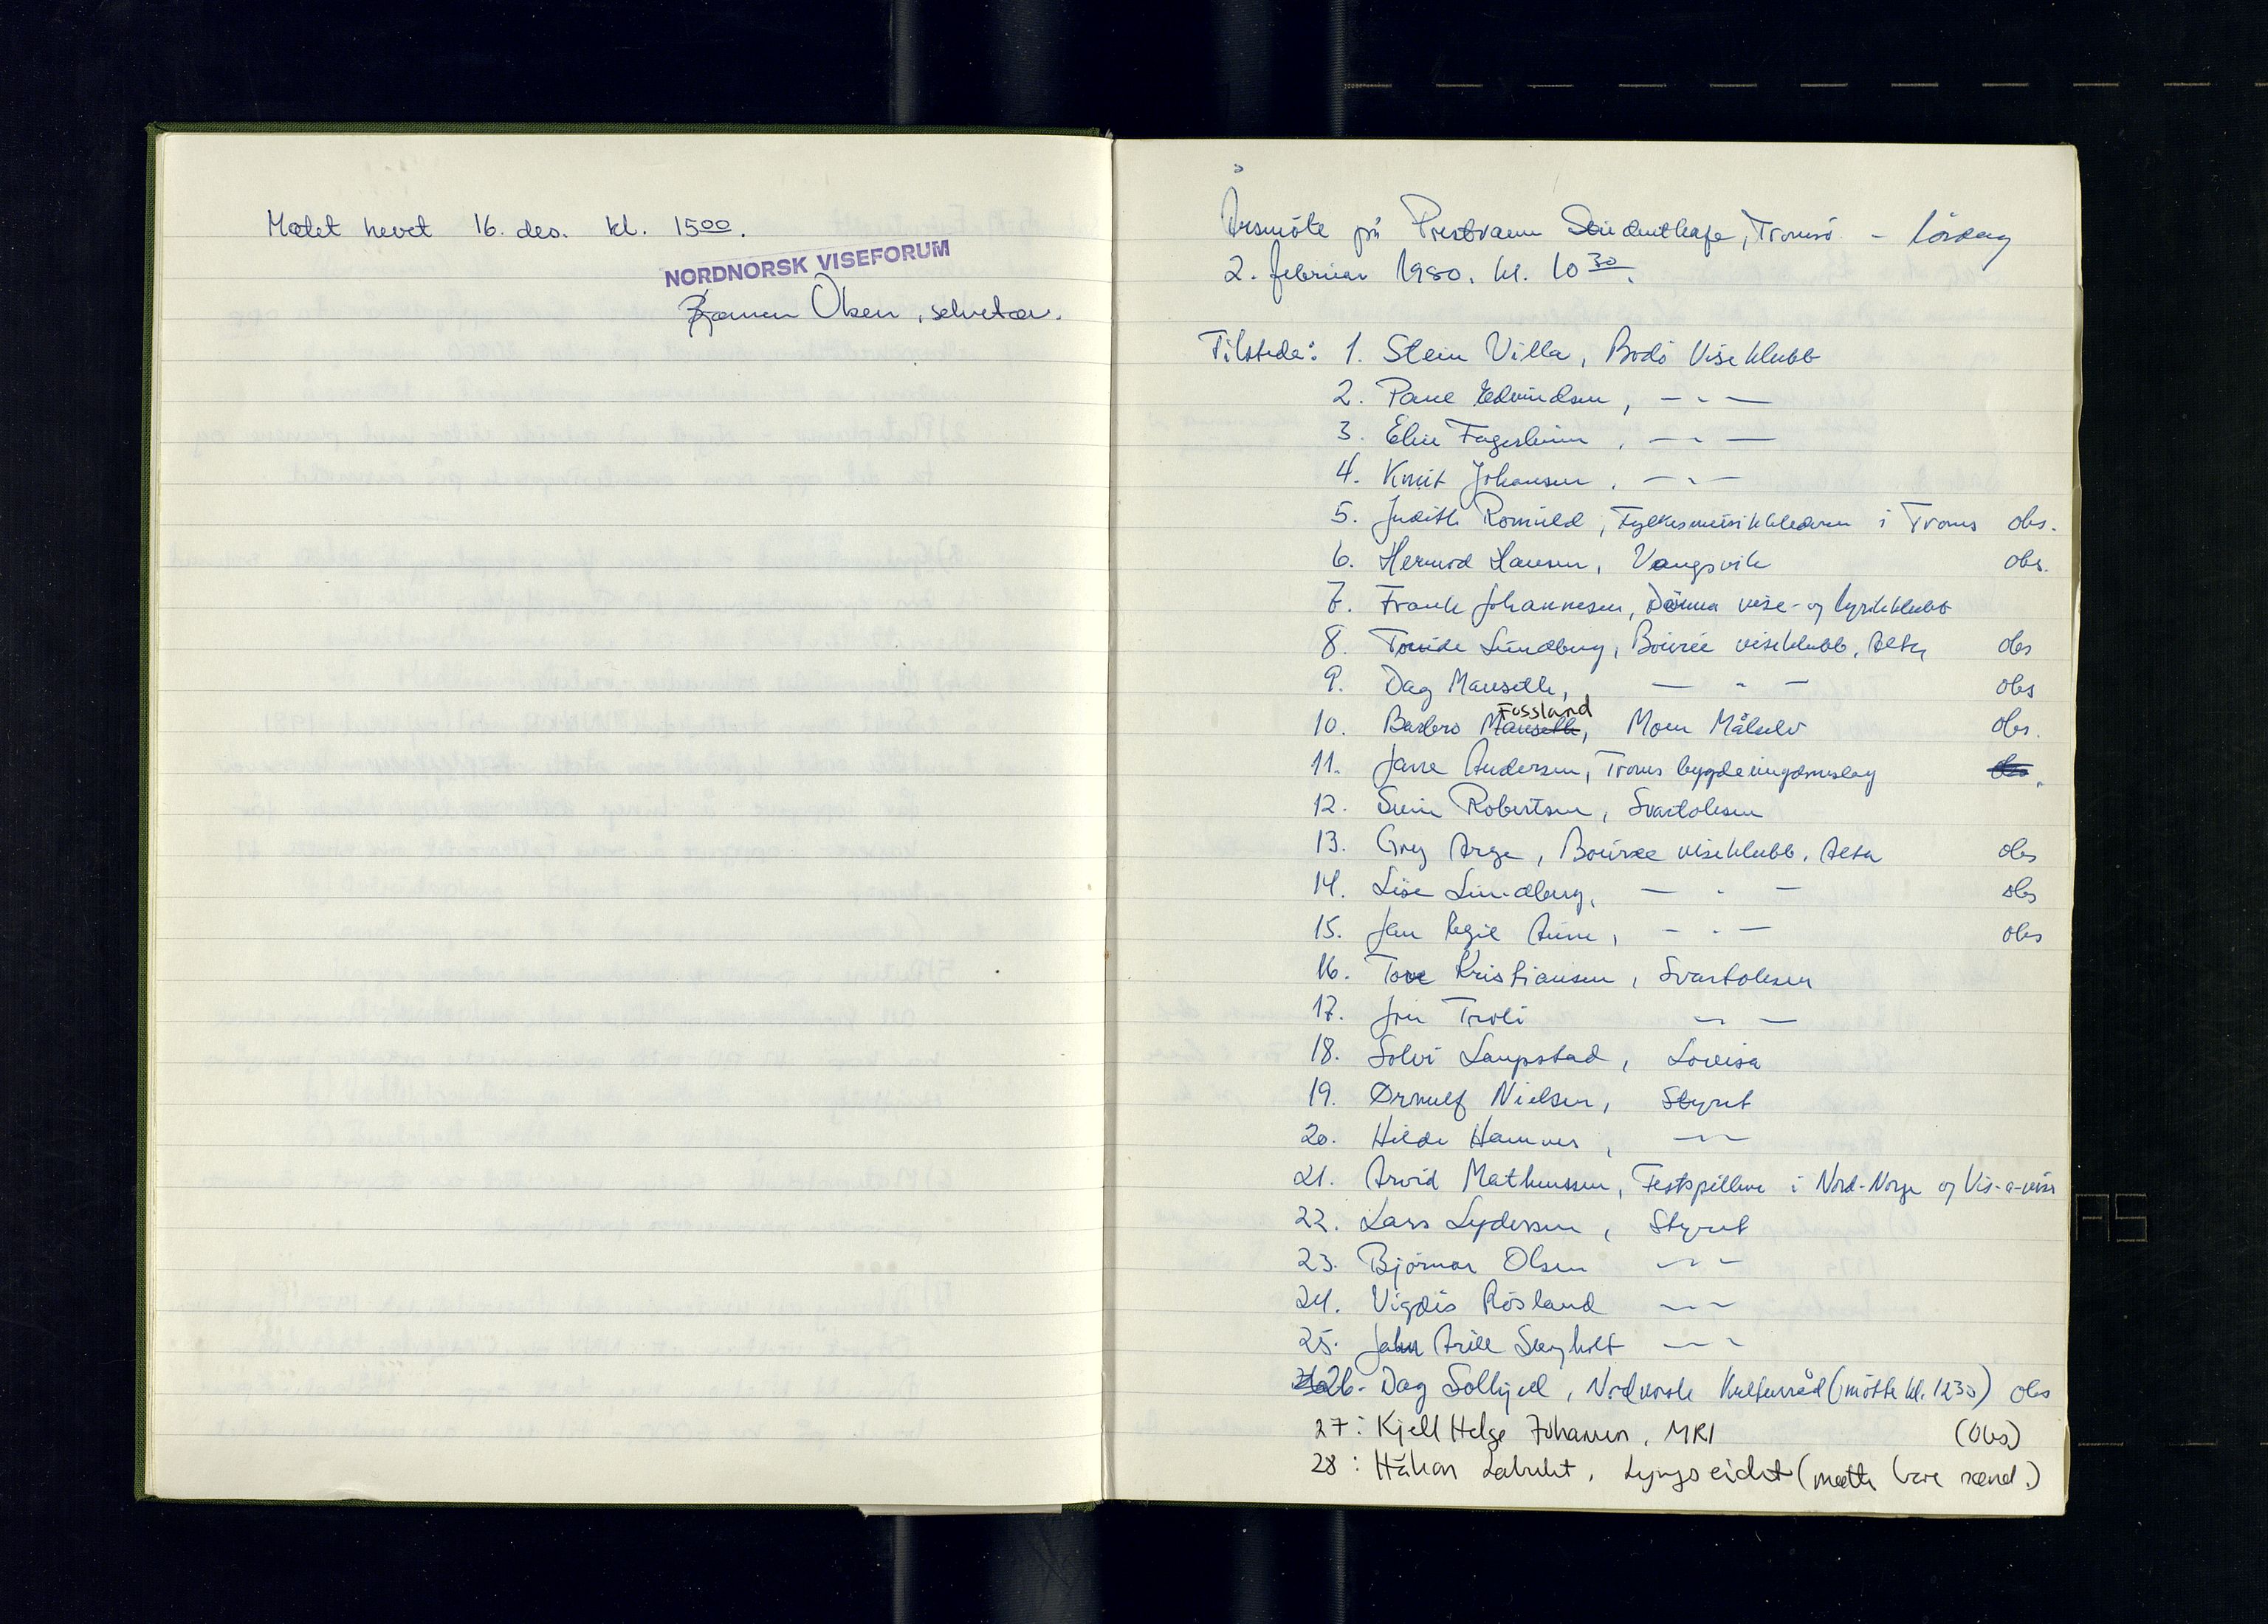 Møtet hevet 16. des. kl. 15 00.
NORDNORSK VISEFORUM
Bjørnar Olsen, sekretær.
Årsmöte på Prestvann Studentkafe, Tromsö - lördag
2. februar 1980. kl. 10 30.
Tilstede: 1. Stein Villa, Bodö Viseklubb
2. Paul Edvindsen, - " -
3. Elin Fagerheim, - " -
4. Knut Johansen, - " -
5. Judith Romuld, Fylkesmusikklederen i Troms obs.
6. Hermod Hansen, Vangsvik obs.
7. Frank Johannesen, Dönna vise- og lyrikklubb
8. Lundberg, Bourée viseklubb, Alta obs
9. Dag Manseth, - " - obs
10. Barbro Manseth Fossland, Moen Målselv obs.
11. Jarre Andersen, Troms bygdeungdomslag obs.
12. Svein Robertsen, Svartolesen
13. Gry Arge, Bourée viseklubb, Alta obs
14. Lise Lundberg, - " - obs
15. Jan Egil Aune, - " - obs
16. Tove Kristiansen, Svartolesen
17. Jon Troli - " -
18. Solvi Laupstad, Lovisa
19. Ørnulf Nielsen, Styret
20. Hilde Hamnes, - " -
21. Arvid Mathiassen, Festspillene i Nord-Norge og Vis-a-vise
22. Lars Lydersen, Styret
23. Björnar Olsen - " -
24. Vigdis Rösland - " -
25. Jahn Arill Skogholt - " -
26. Dag Solhjell, Nordnorsk Kulturråd (mötte kl. 1230) obs
27: Kjell Helge Johansen, MRI (Obs)
28: Håkon Labukt, Lyngseidet (møtte bare sønd.)